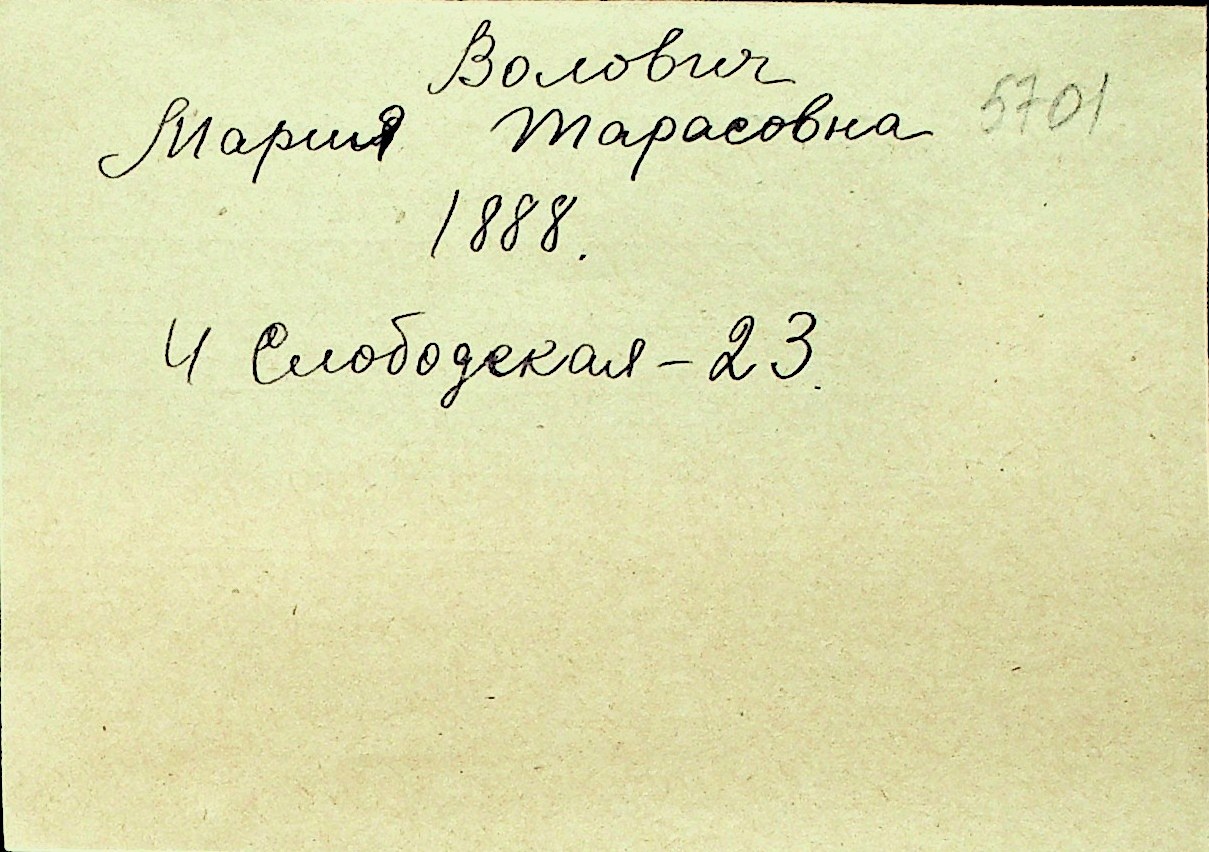 Волович
Мария Тарасовна 5701
1888.
4 Слободская – 23.